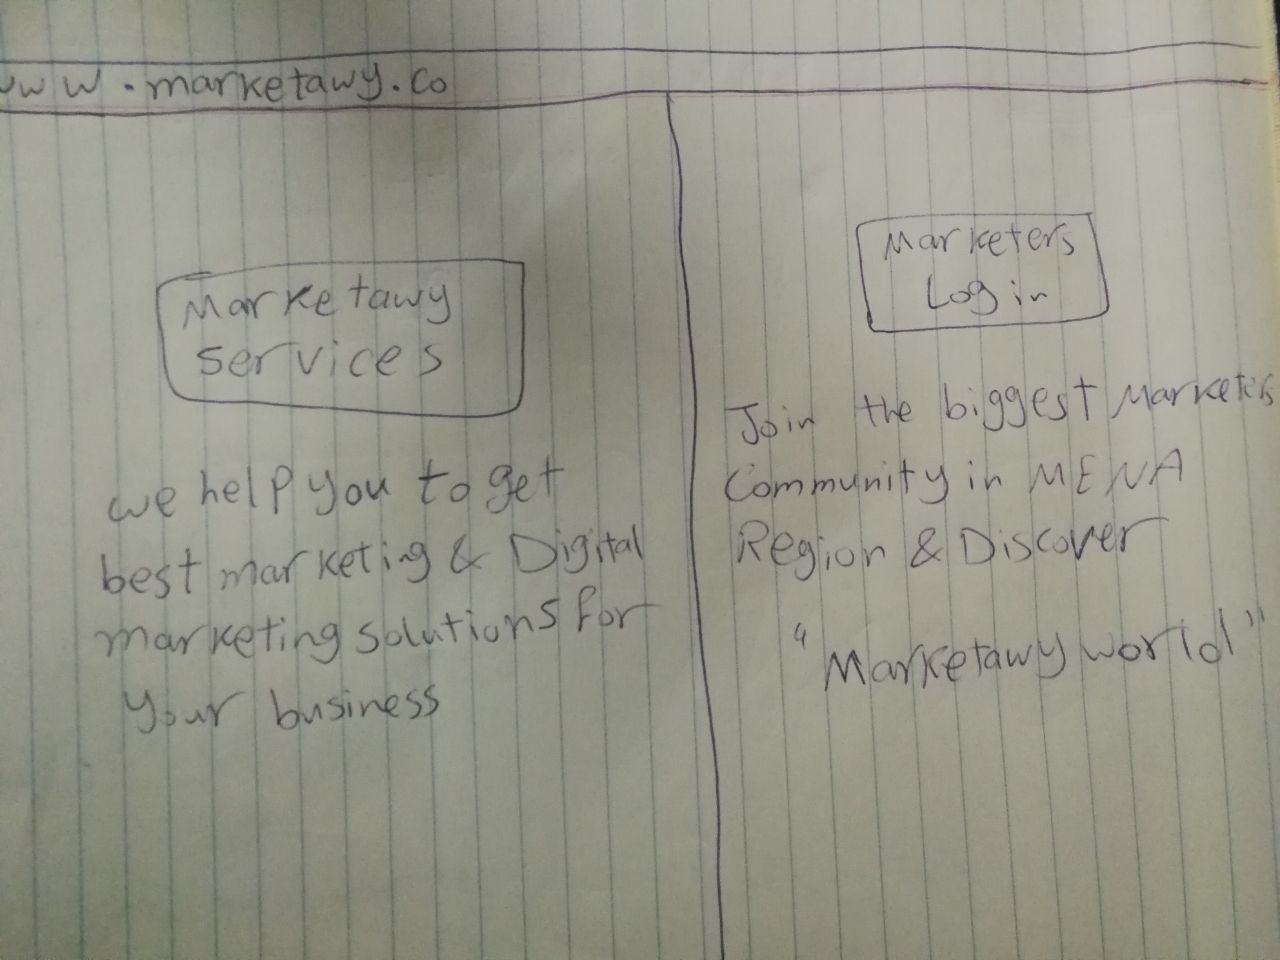 www.marketawy.co
Marketawy
services
we help you to get
best marketig & Digital
marketing solutions for
your business
Marketers
Login
Join the biggest Marketers
Community in MENA
Region & Discover
"Marketawy world"